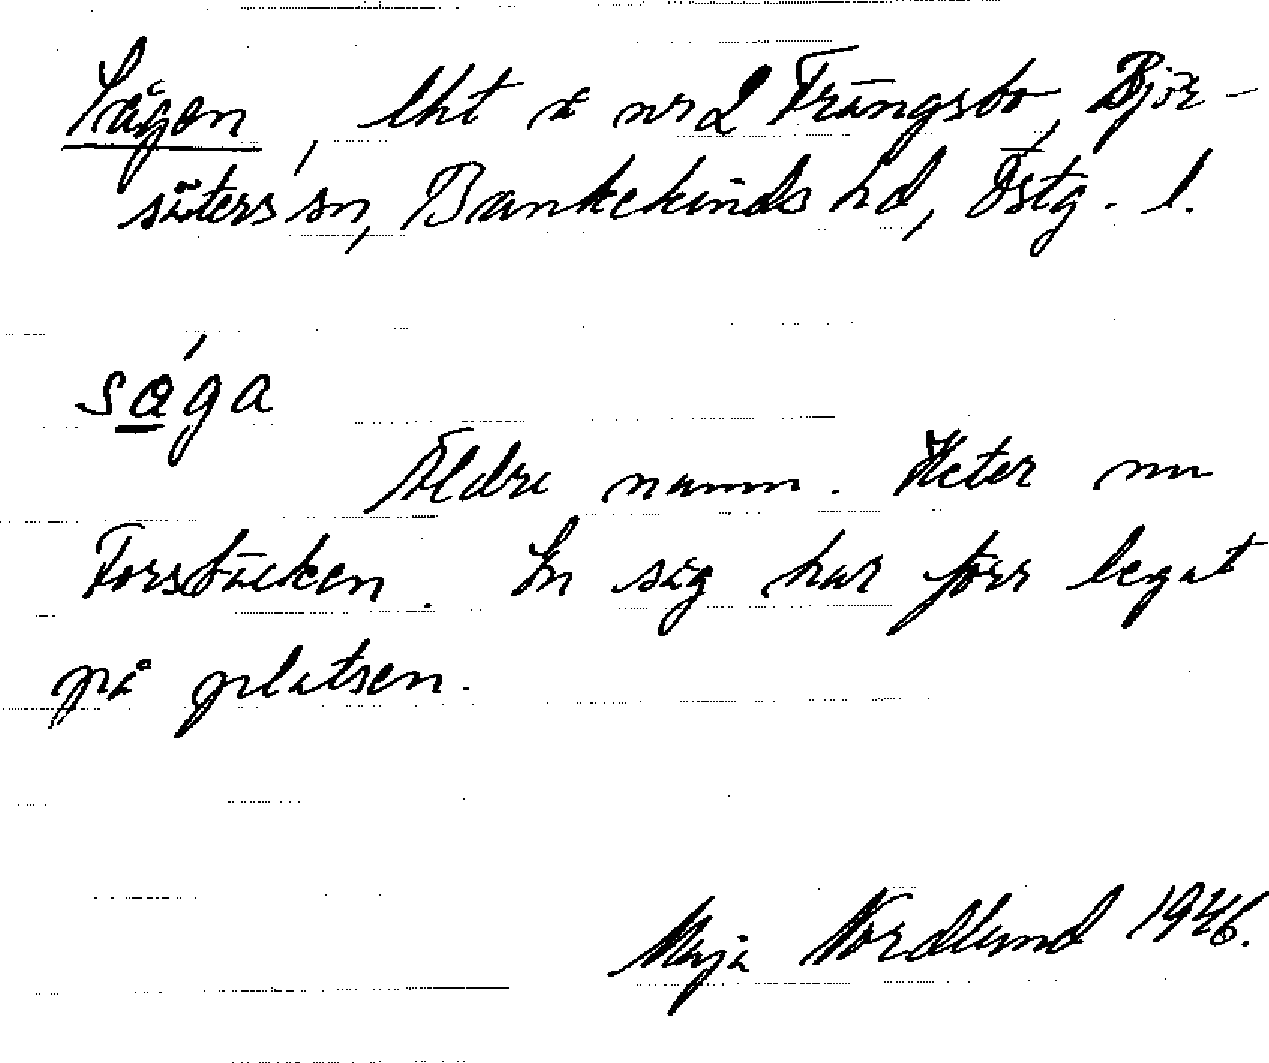 Sågen, lht å nr 2 Trängsbo, Björ-
säters sn, Bankekinds hd, Östg. l.
såga
Äldre namn. Heter nu
Forsbäcken. En såg har förr legat
på platsen.
Maja Nordlund 1946.